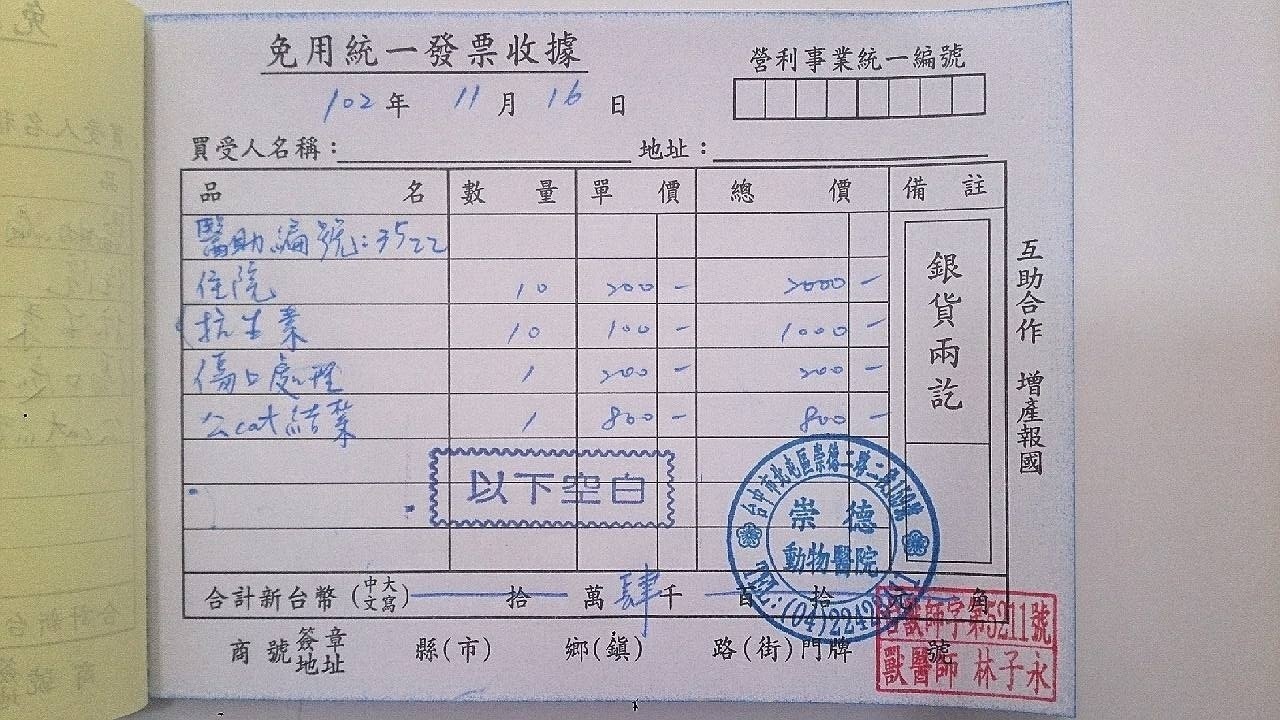 免用統一發票收據
營利事業統一編號
102年 11月 16日
買受人名稱： 地址：
品名 數量 單價 總價 備註
醫助編號:3522
住院 10 200 - 2000 -
抗生素 10 100 - 1000 -
傷口處理 1 200 - 200 -
公cat結紮 1 800 - 800 -
銀貨兩訖
互助合作 增產報國
以下空白
台中市北屯區崇德二路二段
崇德
動物醫院
TEL:(04)2242
合計新台幣(中文大寫) 拾 萬 肆千 百 拾 元 角
商號簽章地址 縣(市) 鄉(鎮) 路(街)門牌 號
師字第5211號
獸醫師 林子永